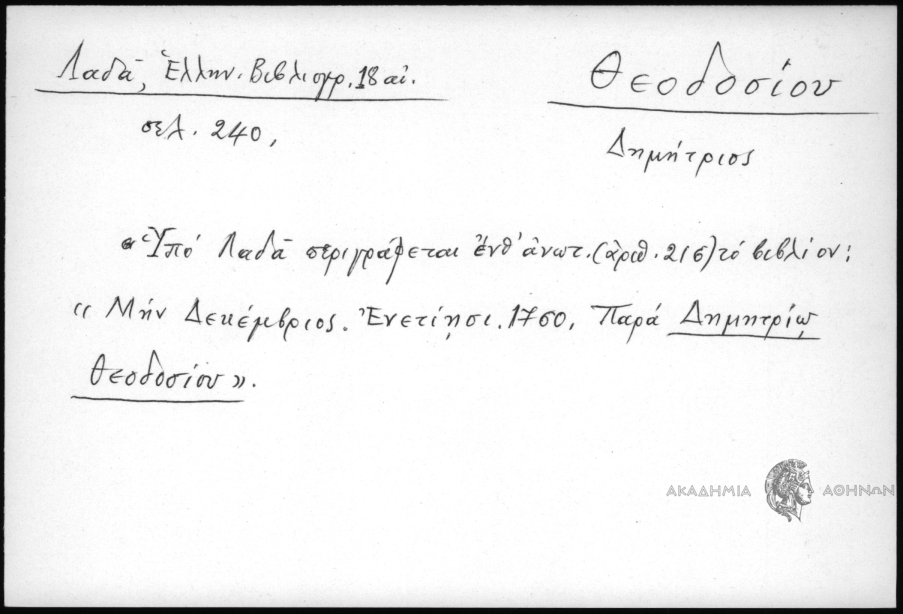 Λαδᾶ, Ἑλλην. Βιβλιογρ. 18 αἰ.
σελ. 240,
Θεοδοσίου
Δημήτριος
Ὑπό Λαδᾶ περιγράφεται ἐνθ' ἀνωτ. (ἀριθ. 215) τό βιβλίον:
«Μήν Δεκέμβριος. Ἐνετίησι. 1760. Παρά Δημητρίῳ
Θεοδοσίου».
ΑΚΑΔΗΜΙΑ ΑΘΗΝΩΝ